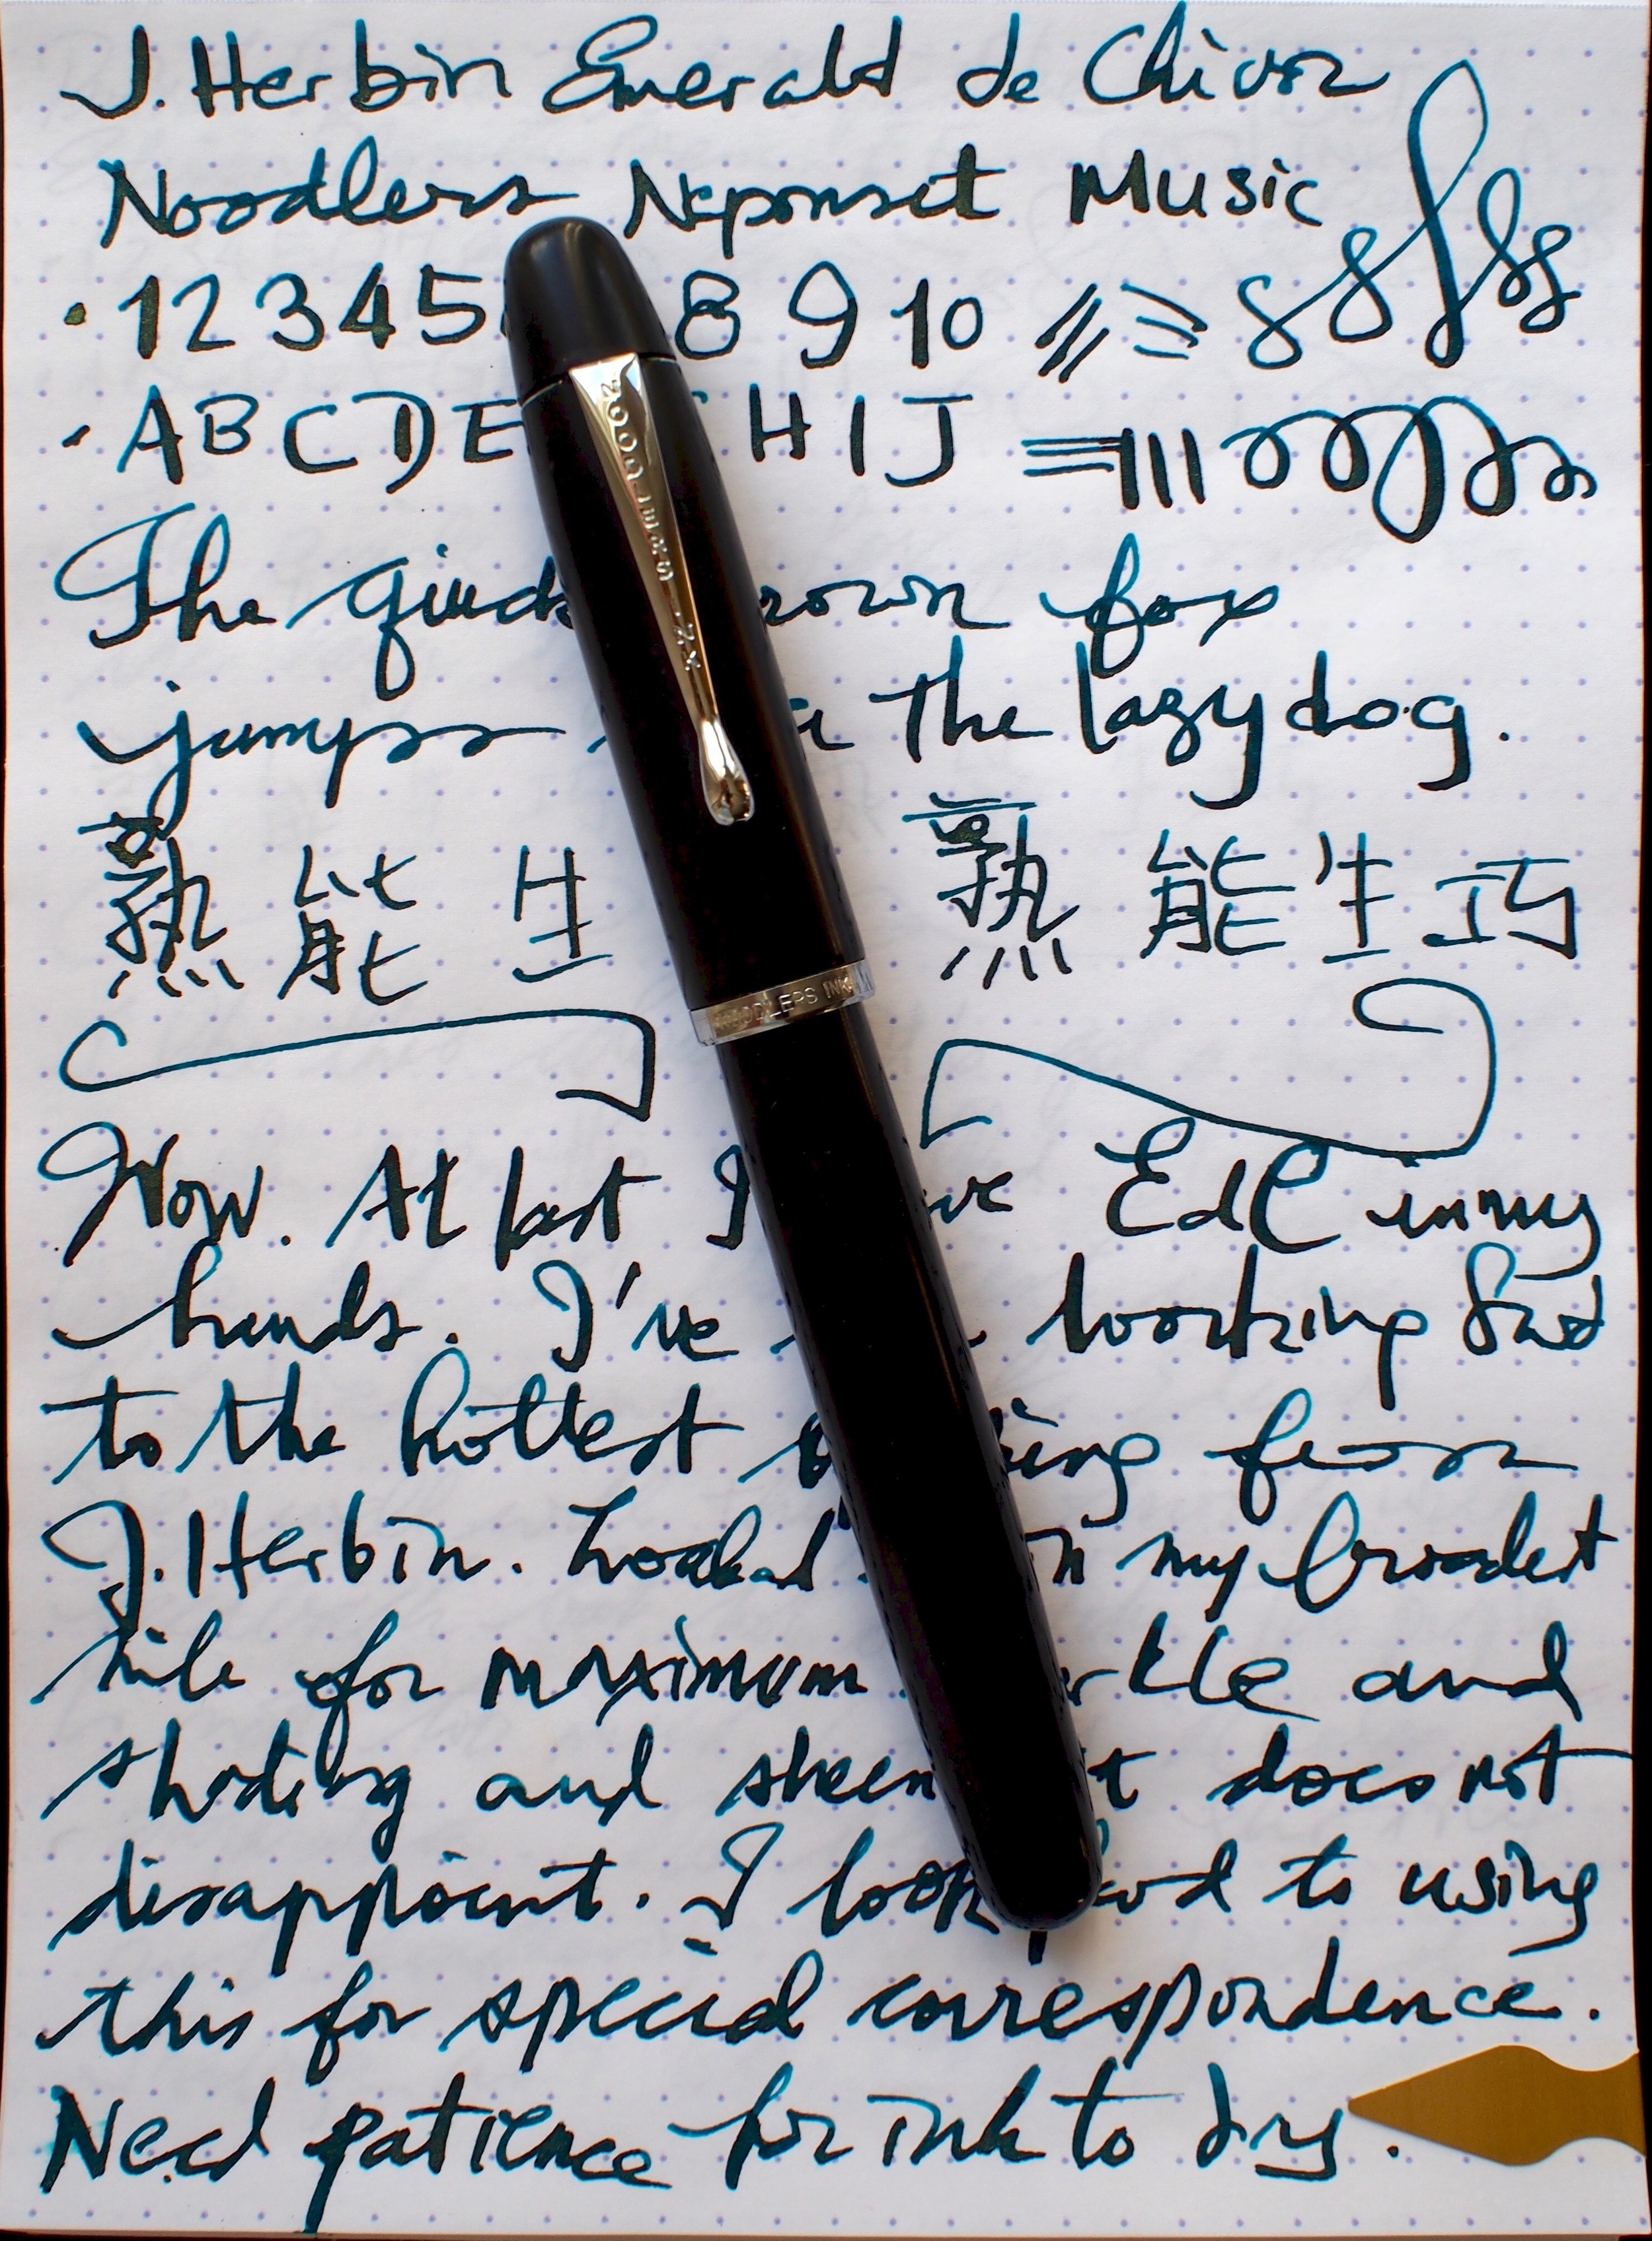 J. Herbin Emerald de Chivor
Noodlers Neponset Music
1 2 3 4 5 8 9 10
A B C D E H I J
The quick rown fox
jumps the lazy dog.
熟能生 熟能生巧
Wow. At last I ve EdC in my
hands. I've looking fwd
to the hottest thing from
J. Herbin. Loaded in my broadest
nib for maximum and
shading and sheen it does not
disappoint. I look fwd to using
this for special correspondence.
Need patience for ink to dry.
NOODLERS INK
NOODLERS INK